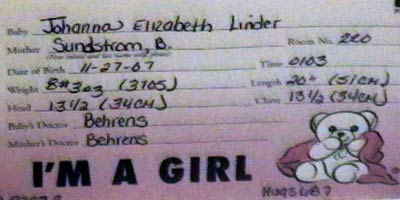 Baby Johanna Elizabeth Linder
Mother Sundstrom, B. Room No. 220
Date of Birth 11-27-07 Time 0103
Weight 8#3oz (3705) Length 20" (51cm)
Head 13 1/2 (34cm) Chest 13 1/2 (34cm)
Baby's Doctor Behrens
Mother's Doctor Behrens
I'M A GIRL